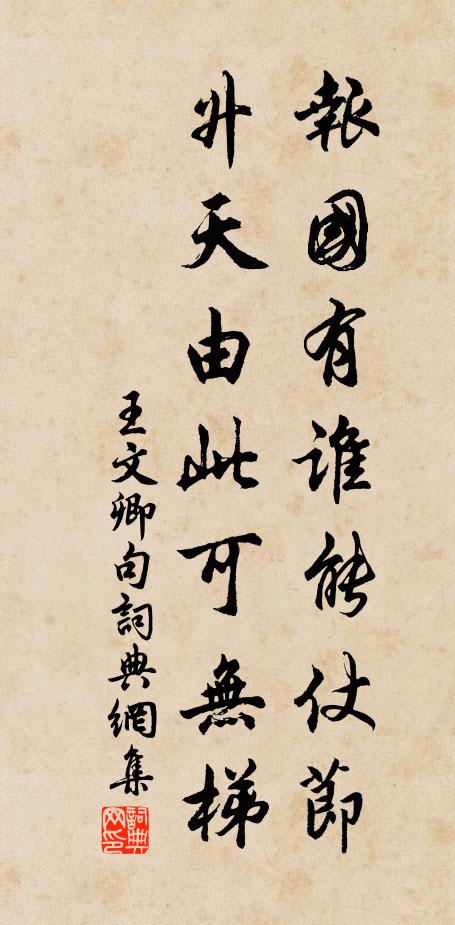 報國有誰能仗節
升天由此可無梯
王文卿句詞典網集
詞典網印